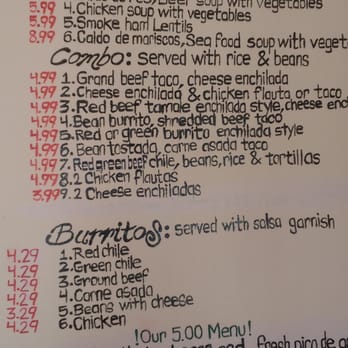 soup with vegetables
5.99 4. Chicken soup with vegetables
5.99 5. Smoke ham Lentils
8.99 6. Caldo de mariscos, Sea food soup with veget
Combo: served with rice & beans
4.99 1. Grand beef taco, cheese enchilada
4.99 2. Cheese enchilada & chicken flauta or taco
4.99 3. Red beef tamale enchilada style, cheese enc
4.99 4. Bean burrito, shredded beef taco
4.99 5. Red or green burrito enchilada style
4.99 6. Bean tostada, carne asada taco
4.99 7. Red green beef chile, beans, rice & tortillas
4.99 8. 2 Chicken flautas
3.99 9. 2 Cheese enchiladas
Burritos: served with salsa garnish
4.29 1. Red chile
4.29 2. Green chile
4.29 3. Ground beef
4.29 4. Carne asada
3.29 5. Beans with cheese
4.29 6. Chicken
!Our 5.00 Menu!
fresh pico de